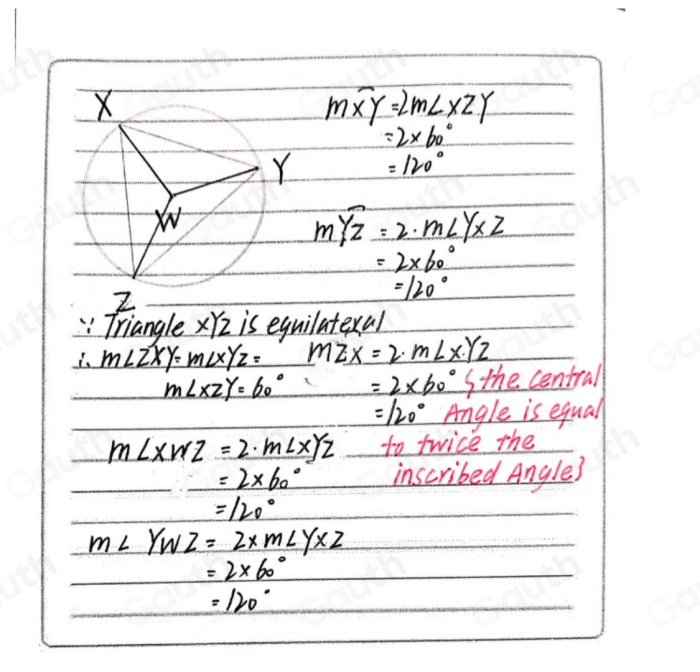 X
Y
W
Z
m⌒XY = 2m∠XZY
= 2×60°
= 120°
m⌒YZ = 2·m∠YXZ
= 2×60°
= 120°
∵ Triangle XYZ is equilateral
∴ m∠ZXY = m∠XYZ =
m∠XZY = 60°
mZX = 2·m∠XYZ
= 2×60° {the central
= 120° Angle is equal
to twice the
inscribed Angle}
m∠XWZ = 2·m∠XYZ
= 2×60°
= 120°
m∠YWZ = 2×m∠YXZ
= 2×60°
= 120°
Gauth